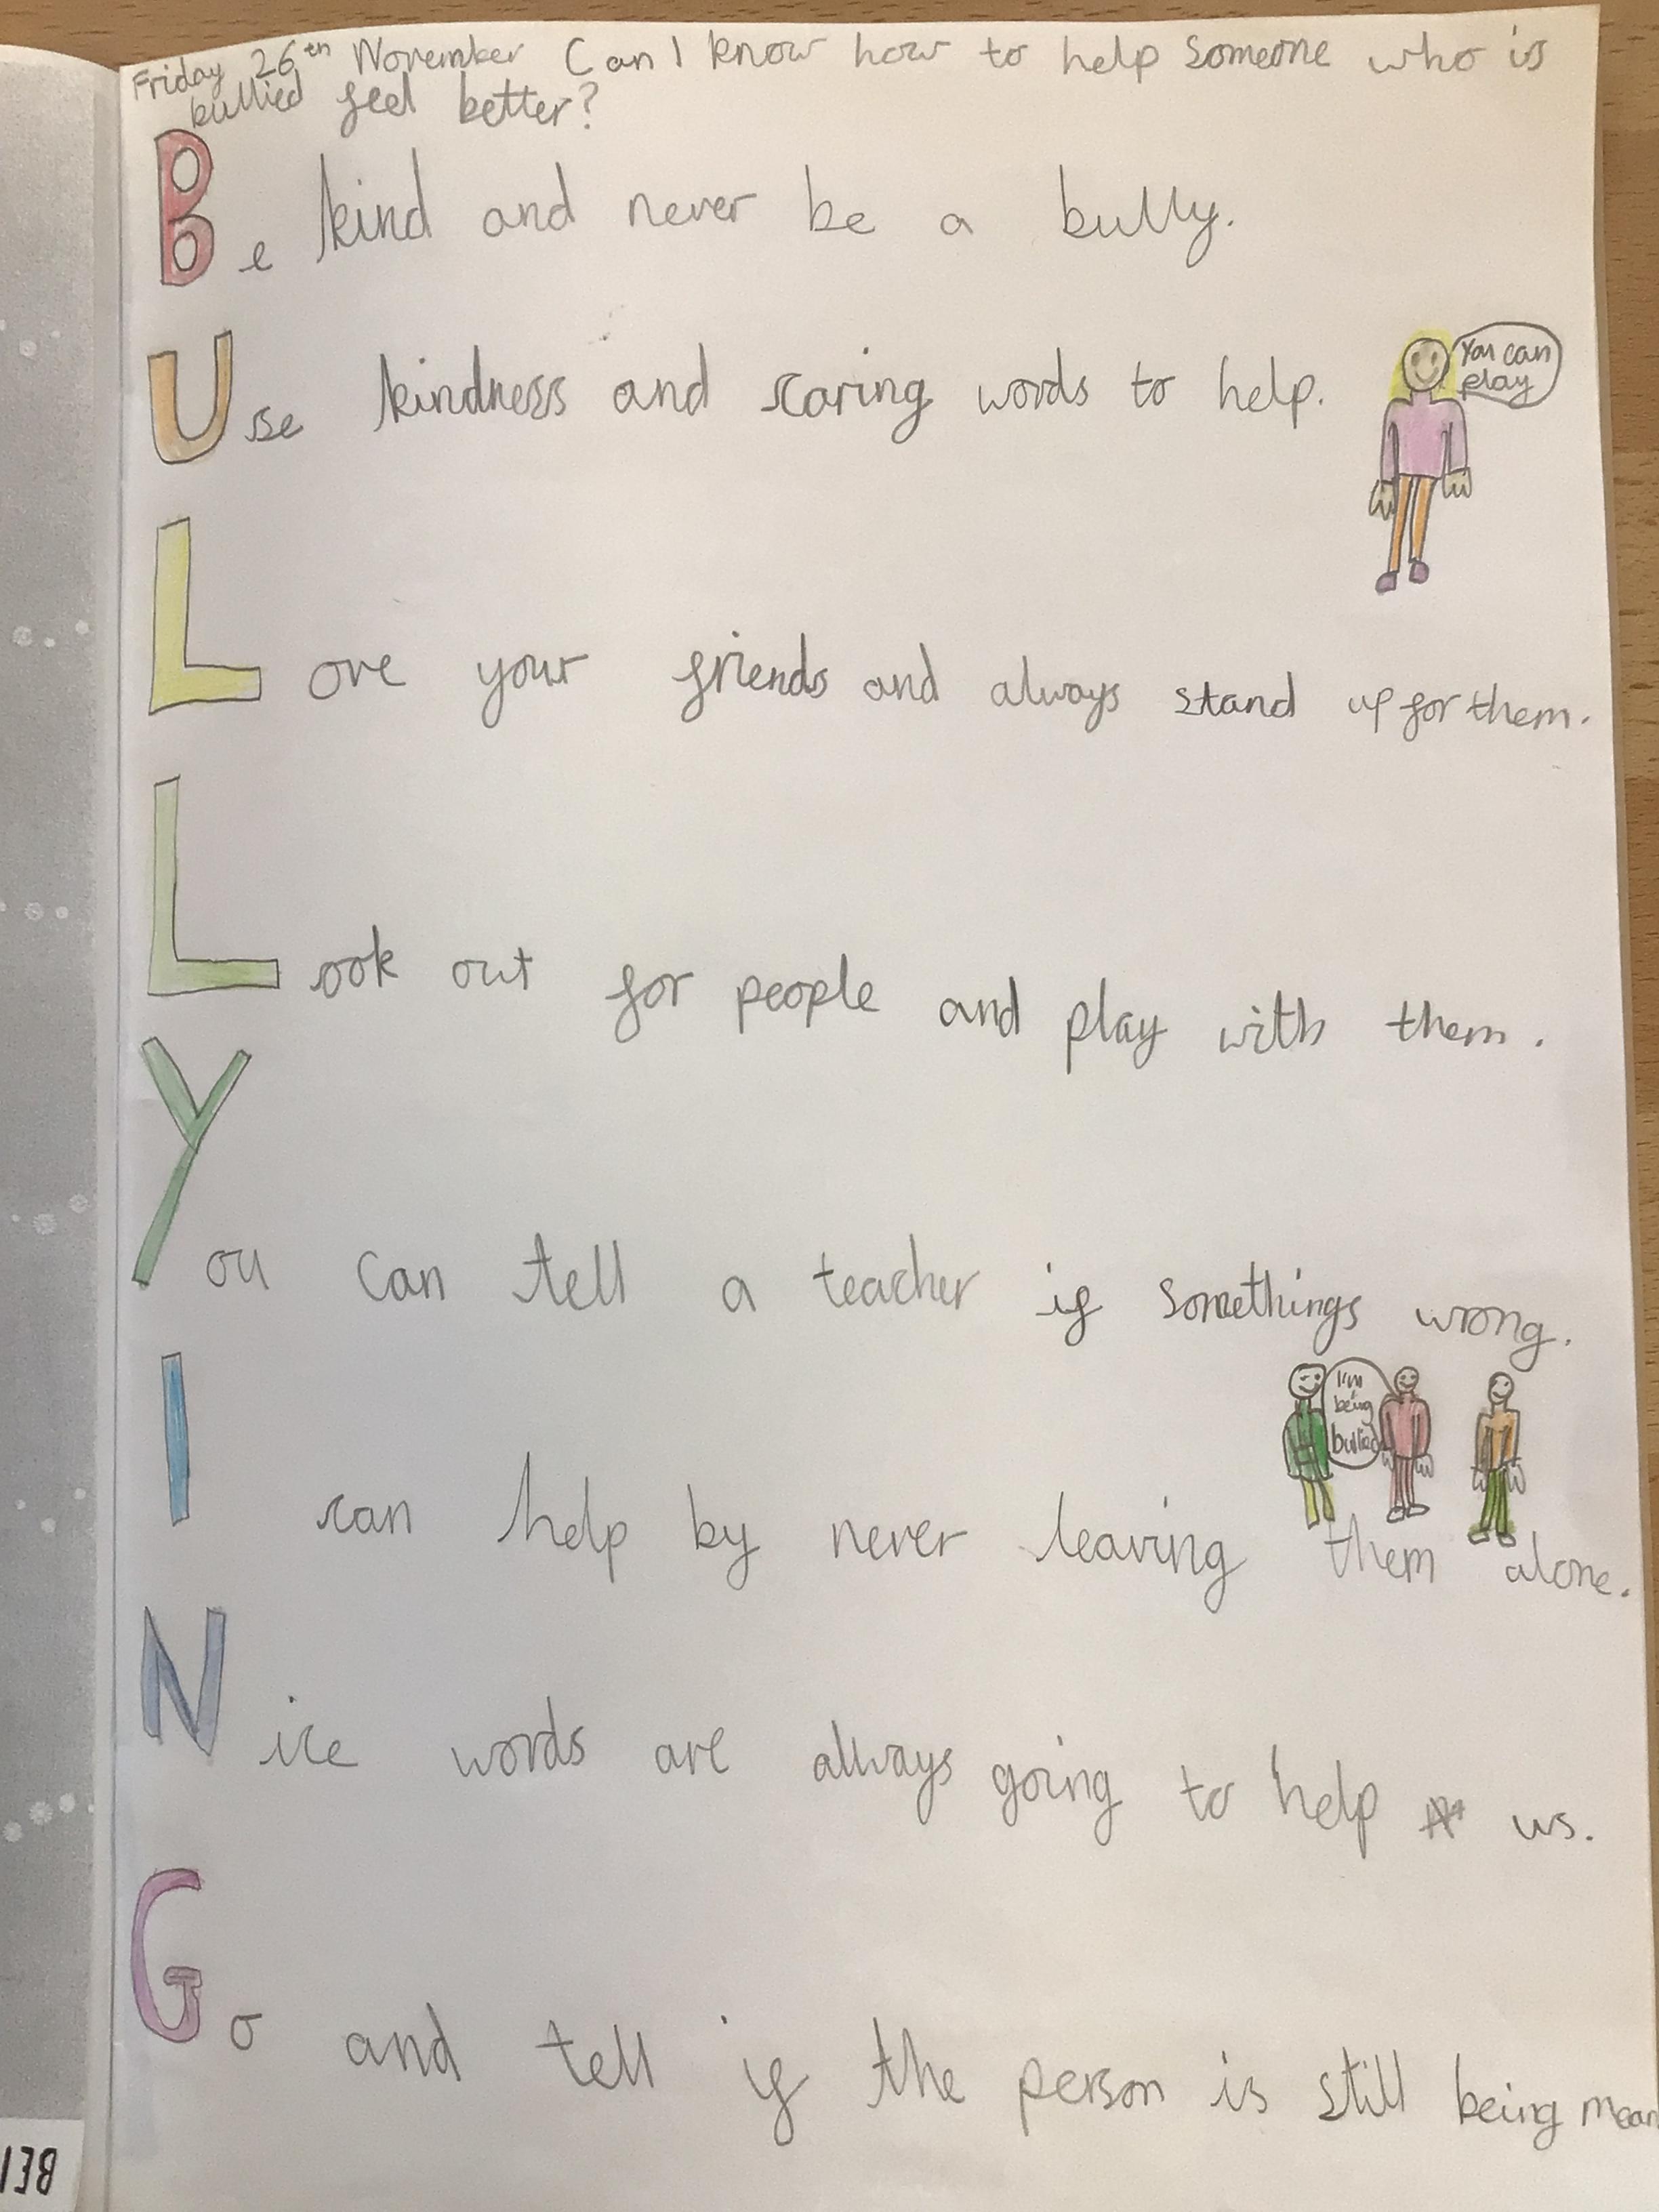 Friday 26th November Can I know how to help someone who is
bullied feel better?
Be kind and never be a bully.
Use kindness and caring words to help.
You can
play
Love your friends and always stand up for them.
Look out for people and play with them.
You can tell a teacher if somethings wrong.
I'm
being
bullied
I can help by never leaving them alone.
Nice words are always going to help us.
Go and tell if the person is still being mean
BEI